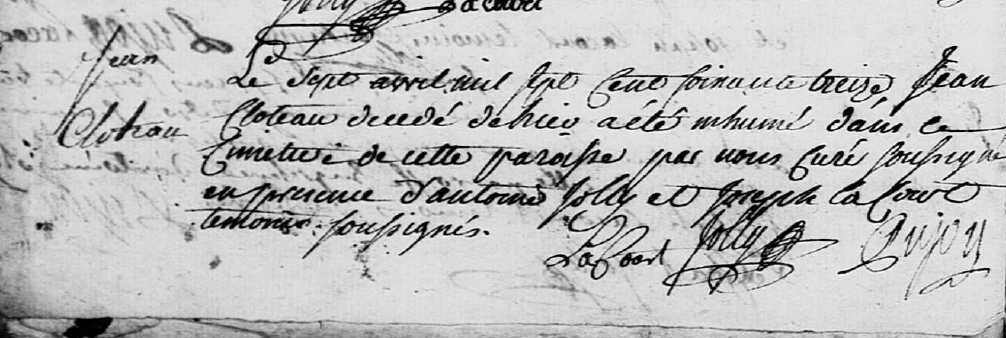 Jolly Lacourt
Jean
Cloteau
Le Sept avril mil sept Cent soixante treize Jean
Cloteau decedé de hier a été inhumé dans ce
Cimettiè de cette paroisse par nous Curé soussigné
en presence d'antoine Jolly et Joseph La Court
temoins soussignés.
LaCourt Jolly Dujon